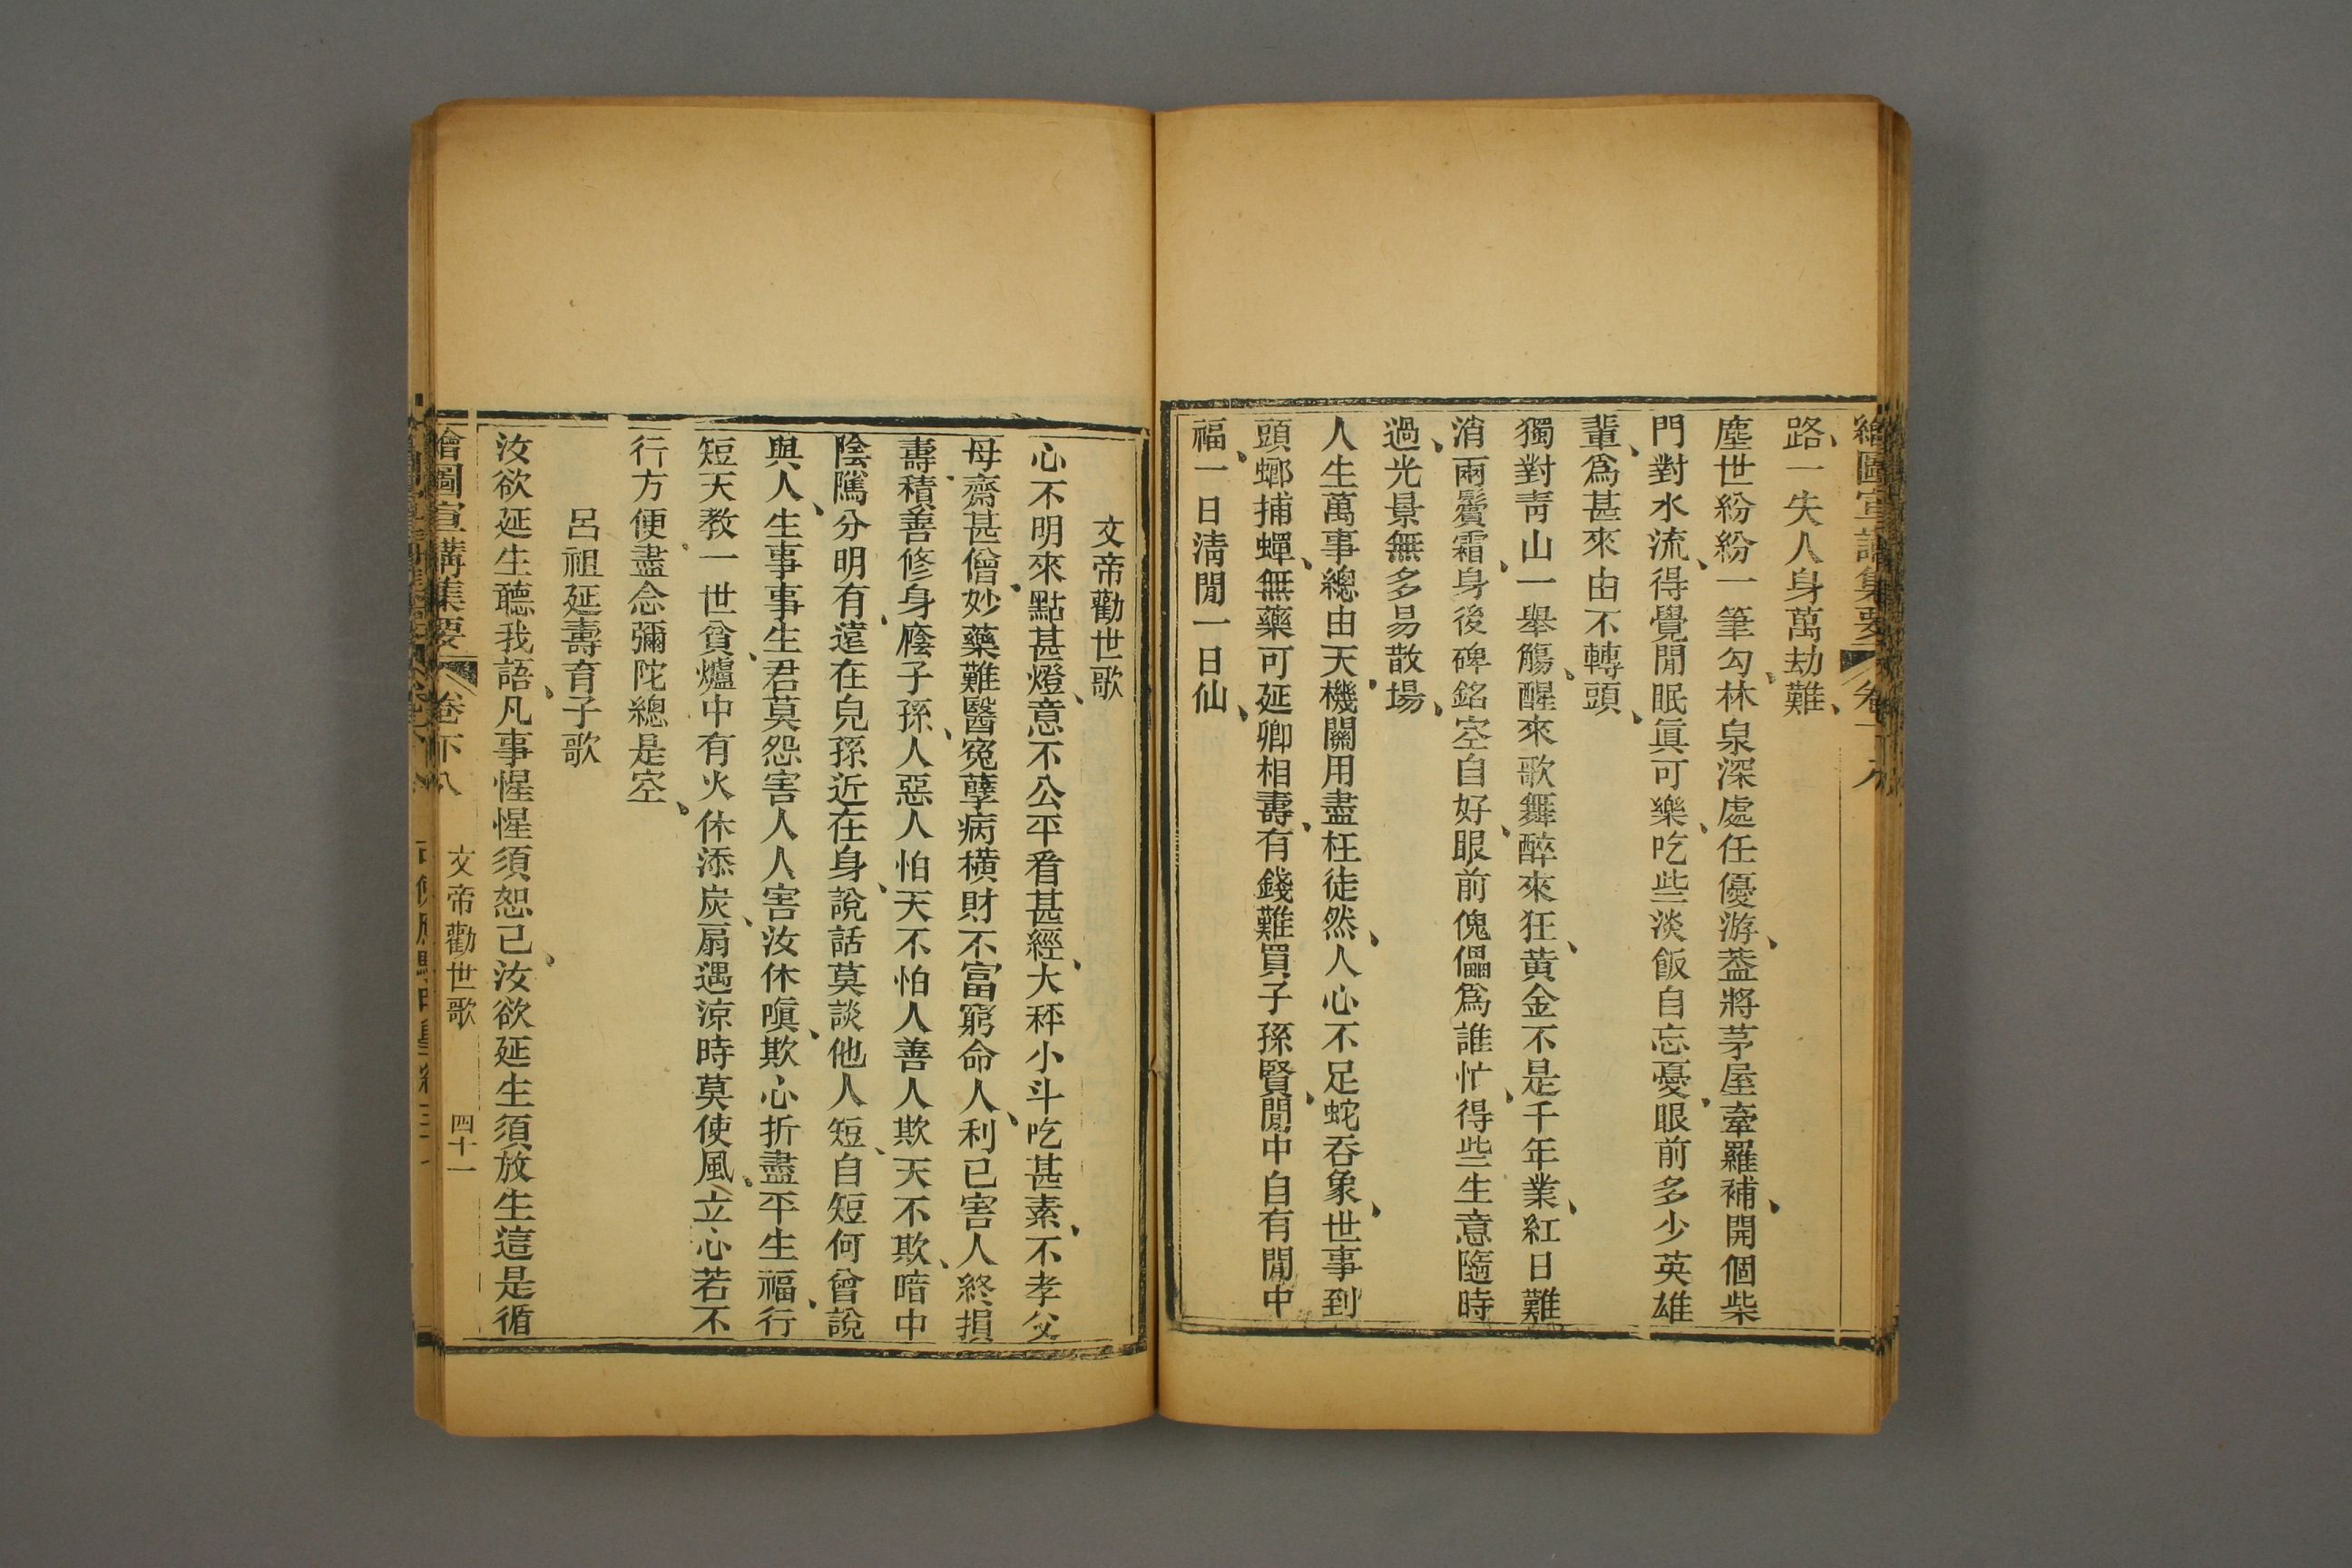 繪圖宣講集要 卷下八
路、一失人身萬劫難、
塵世紛紛一筆勾、林泉深處任優游、蓋將茅屋牽羅補、開個柴
門對水流、得覺閒眠眞可樂、吃些淡飯自忘憂、眼前多少英雄
輩、爲甚來由不轉頭、
獨對靑山一舉觴、醒來歌舞醉來狂、黃金不是千年業、紅日難
消兩鬢霜、身後碑銘空自好、眼前傀儡爲誰忙、得些生意隨時
過、光景無多易散場、
人生萬事總由天、機關用盡枉徒然、人心不足蛇吞象、世事到
頭螂捕蟬、無藥可延卿相壽、有錢難買子孫賢、閒中自有閒中
福、一日淸閒一日仙、
文帝勸世歌
心不明來點甚燈、意不公平看甚經、大秤小斗吃甚素、不孝父
母齋甚僧、妙藥難醫寃孽病橫財不富窮命人、利己害人終損
壽、積善修身廕子孫、人惡人怕天不怕人善人欺天不欺、暗中
陰隲分明有、遠在兒孫近在身、說話莫談他人短、自短何曾說
與人、生事事生君莫怨害人人害汝休嗔、欺心折盡平生福、行
短天教一世貧、爐中有火休添炭、扇遇涼時莫使風、立心若不
行方便、盡念彌陀總是空、
呂祖延壽育子歌
汝欲延生聽我語、凡事惺惺須恕己、汝欲延生須放生這是循
繪圖宣講集要 卷下八 文帝勸世歌 四十一